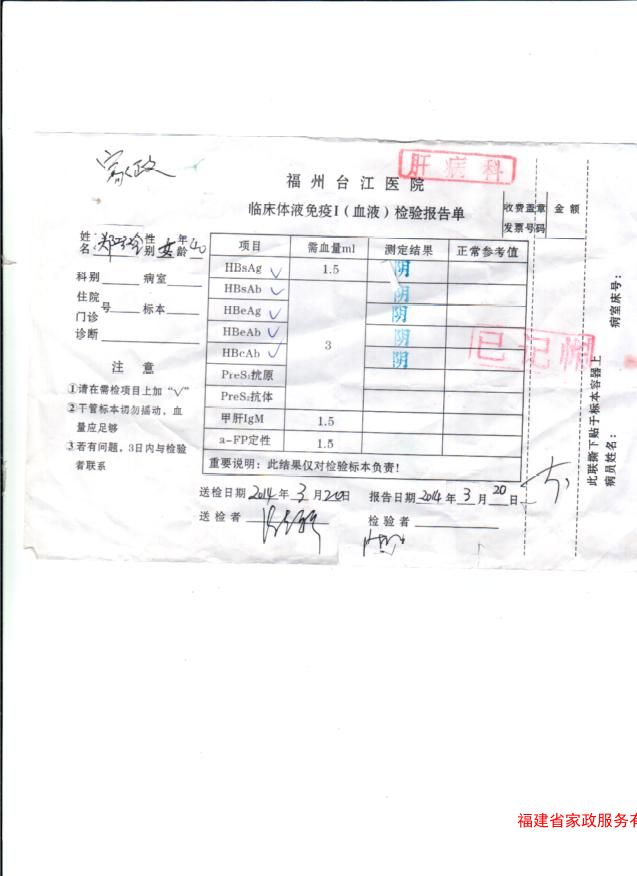 家政
肝病科
福州台江医院
临床体液免疫I（血液）检验报告单
收费盖章 金额
发票号码
姓名 郑 性别 女 年龄 40
科别 病室
住院
号 标本
门诊
诊断
注 意
①请在需检项目上加“√”
②干管标本切勿摇动，血
量应足够
③若有问题，3日内与检验
者联系
项目 需血量ml 测定结果 正常参考值
HBsAg √ 1.5 阴
HBsAb √ 阴
HBeAg √ 阴
HBeAb √ 3 阴
HBcAb √ 阴
PreS₁抗原
PreS₂抗体
甲肝IgM 1.5
a-FP定性 1.5
重要说明：此结果仅对检验标本负责！
已记帐
送检日期 2014年3月20日 报告日期 2014年3月20日
送检者 检验者
病室床号：
此联撕下贴于标本容器上
病员姓名：
福建省家政服务有